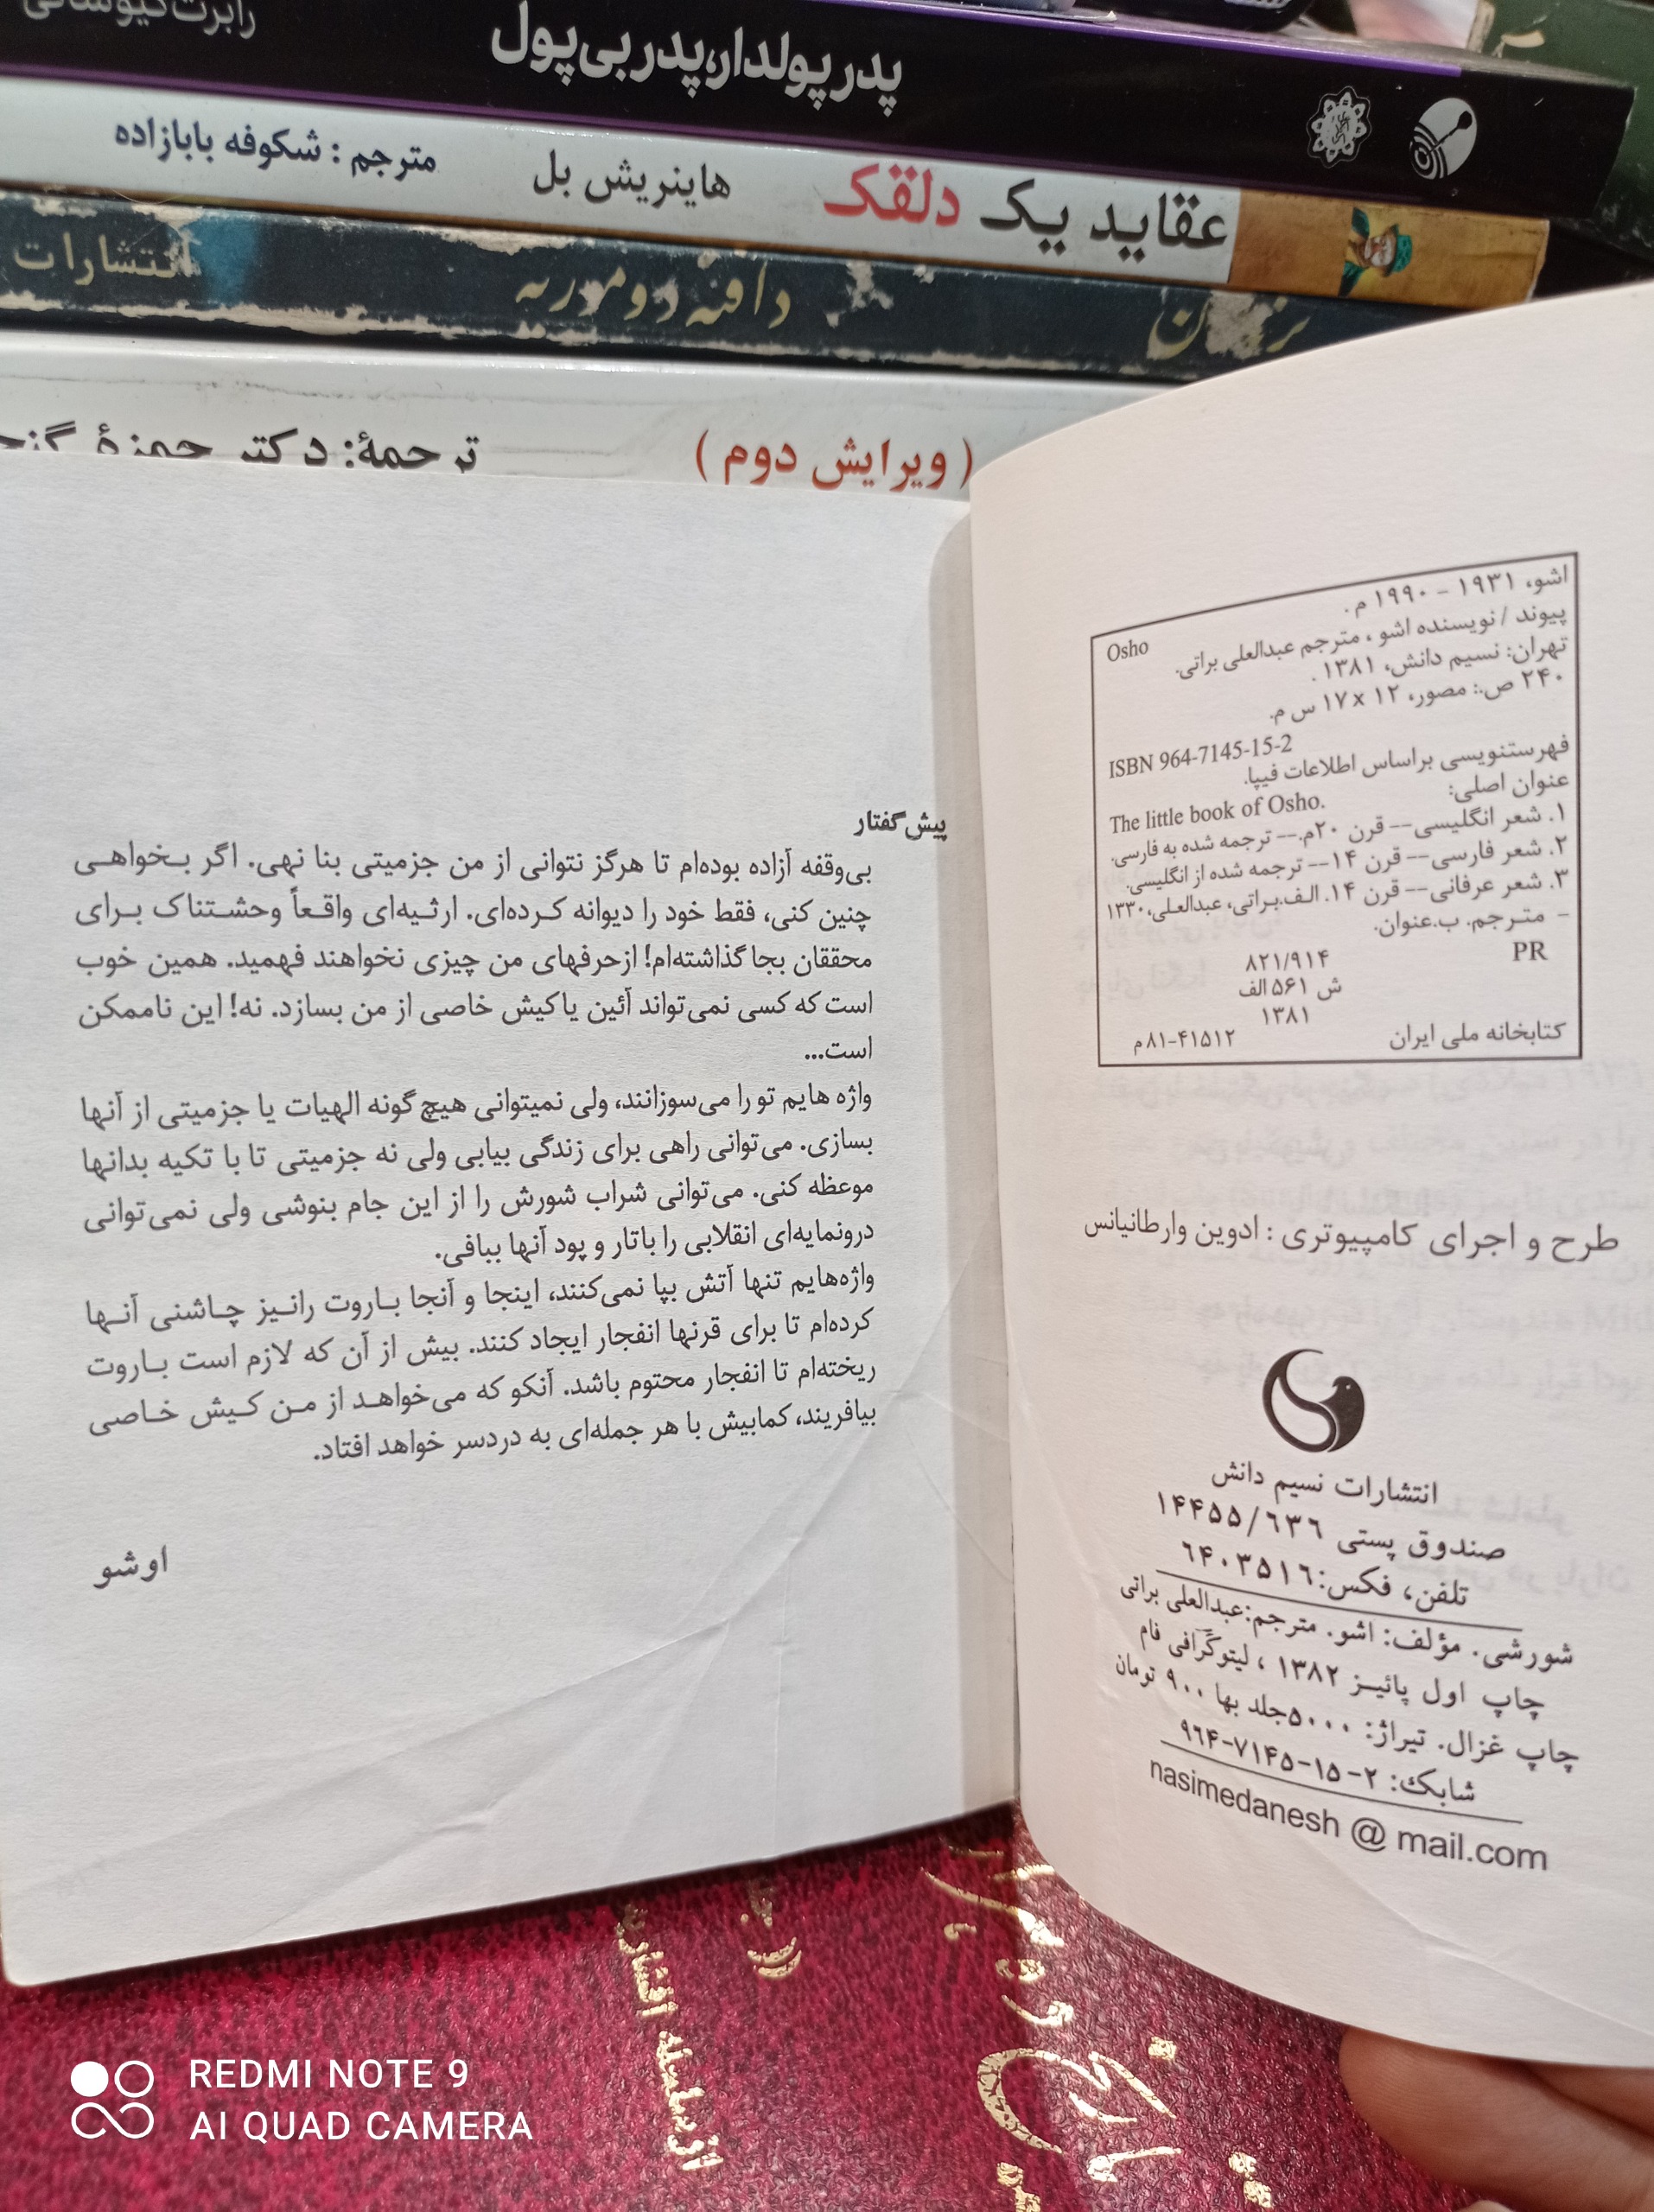 رابرت کیوساکی
پدر پولدار، پدر بی‌پول
عقاید یک دلقک
هاینریش بل
مترجم : شکوفه بابازاده
دافنه دوموریه
انتشارات
( ویرایش دوم )
ترجمهٔ: دکتر حمزهٔ
اشو، ۱۹۳۱ - ۱۹۹۰ م.
Osho
پیوند / نویسنده اشو ، مترجم عبدالعلی براتی.
تهران: نسیم دانش، ۱۳۸۱ .
۲۴۰ ص.: مصور، ۱۲ x ۱۷ س م.
ISBN 964-7145-15-2
فهرستنویسی براساس اطلاعات فیپا.
عنوان اصلی:
The little book of Osho.
۱. شعر انگلیسی-- قرن ۲۰م.-- ترجمه شده به فارسی.
۲. شعر فارسی-- قرن ۱۴-- ترجمه شده از انگلیسی.
۳. شعر عرفانی-- قرن ۱۴. الـف.بـراتی، عبدالعـلی، ۱۳۳۰
- متـرجم. ب.عنوان.
PR
۸۲۱/۹۱۴
ش ۵۶۱ الف
۱۳۸۱
کتابخانه ملی ایران
۸۱-۴۱۵۱۲ م
طرح و اجرای کامپیوتری : ادوین وارطانیانس
انتشارات نسیم دانش
صندوق پستی ۱۴۴۵۵/۶۳۶
تلفن، فکس:۶۴۰۳۵۱۶
شورشی. مؤلف: اشو. مترجم:عبدالعلی براتی
چاپ اول پائیـز ۱۳۸۲ ، لیتوگرافی فام
چاپ غزال. تیراژ: ۵۰۰۰جلد بها ۹۰۰ تومان
شابک: ۲-۱۵-۷۱۴۵-۹۶۴
nasimedanesh @ mail.com
پیش‌گفتار
بی‌وقفه آزاده بوده‌ام تا هرگز نتوانی از من جزمیتی بنا نهی. اگر بـخواهـی
چنین کنی، فقط خود را دیوانه کـرده‌ای. ارثـیه‌ای واقـعاً وحشـتناک بـرای
محققان بجا گذاشته‌ام! ازحرفهای من چیزی نخواهند فهمید. همین خوب
است که کسی نمی‌تواند آئین یا کیش خاصی از من بسازد. نه! این ناممکن
است...
واژه هایم تو را می‌سوزانند، ولی نمیتوانی هیچ گونه الهیات یا جزمیتی از آنها
بسازی. می‌توانی راهی برای زندگی بیابی ولی نه جزمیتی تا با تکیه بدانها
موعظه کنی. می‌توانی شراب شورش را از این جام بنوشی ولی نمی‌توانی
درونمایه‌ای انقلابی را باتار و پود آنها ببافی.
واژه‌هایم تنها آتش بپا نمی‌کنند، اینجا و آنجا بـاروت رانـیز چـاشنی آنـها
کرده‌ام تا برای قرنها انفجار ایجاد کنند. بیش از آن که لازم است بـاروت
ریخته‌ام تا انفجار محتوم باشد. آنکو که می‌خواهـد از مـن کـیش خـاصی
بیافریند، کمابیش با هر جمله‌ای به دردسر خواهد افتاد.
اوشو
REDMI NOTE 9
AI QUAD CAMERA